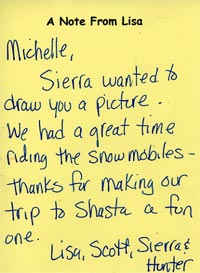 A Note From Lisa
Michelle,
Sierra wanted to
draw you a picture.
We had a great time
riding the snowmobiles -
thanks for making our
trip to Shasta a fun
one.
Lisa, Scott, Sierra &
Hunter